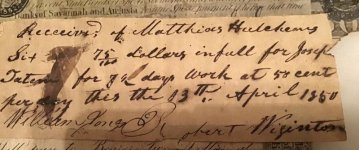 Banks of Savannah and Augusta
Receivd of Matthias Hutchens
Six 75 dollars in full for Joseph
Tatem for 92 days Work at 50 cent
per day this the 13th April 1850
William Jones Robert Wiginton